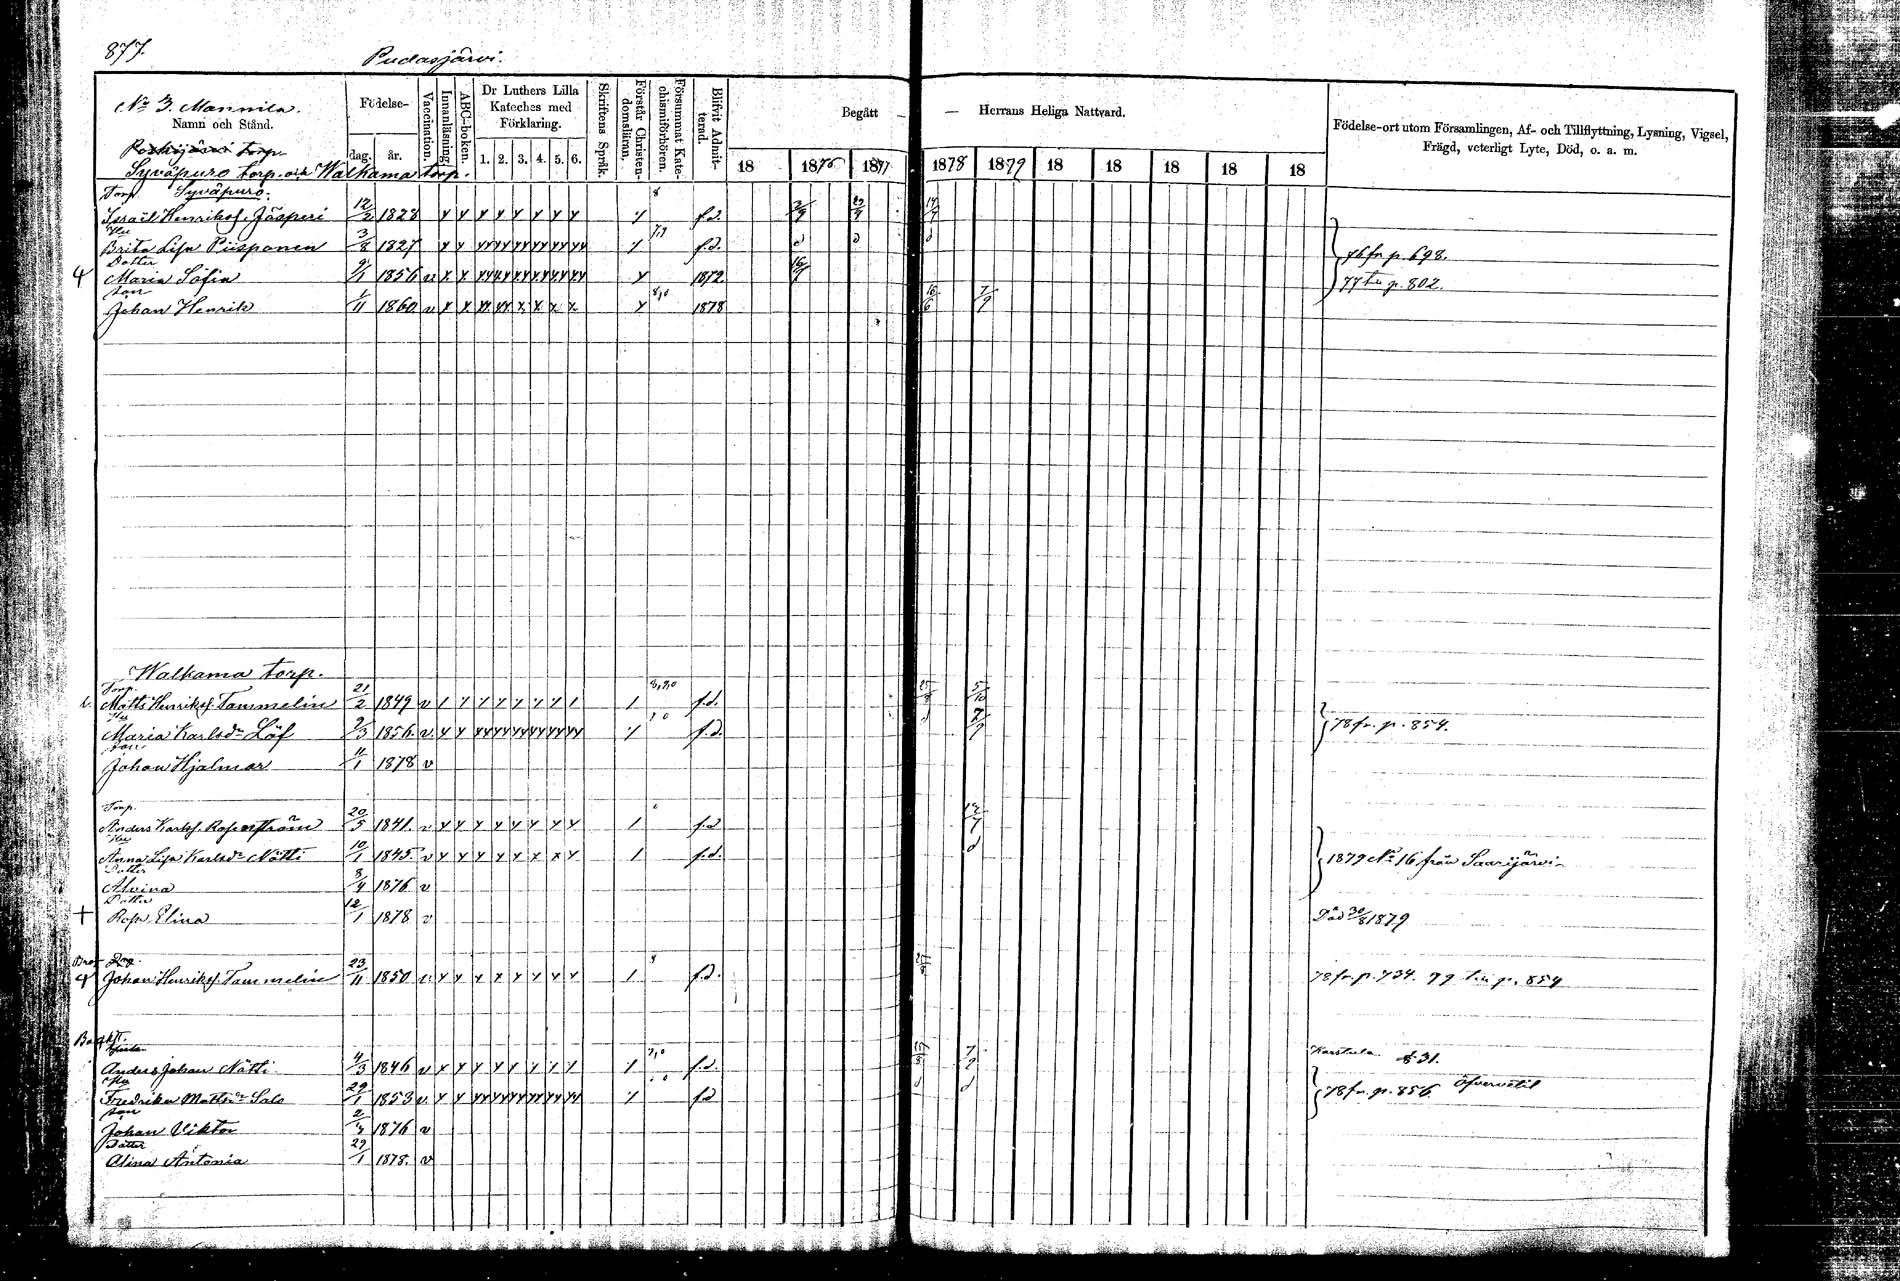 877.
Pudasjärvi.
No 3. Mannila.
Namn och Stånd.
Födelse-
dag. år.
Vaccination.
Innanläsning.
ABC-boken.
Dr Luthers Lilla Kateches med Förklaring.
1. 2. 3. 4. 5. 6.
Skriftens Språk.
Förstår Christendomsläran.
Försummat Katechismiförhören.
Blifvit Admitterad.
Begått — — Herrans Heliga Nattvard.
18 1876 1877 1878 1879 18 18 18 18 18
Födelse-ort utom Församlingen, Af- och Tillflyttning, Lysning, Vigsel,
Frägd, veterligt Lyte, Död, o. a. m.
Syväpuro torp. och Walkama torp.
Torp. Syväpuro.
Israël Henriksf. Jäsperi 12/2 1828 y y y y y y y y y f.d. 2/9 17/7
Hu
Brita Lisa Piisponen 3/8 1827 y y yy yy yy yy yy yy y 7,9 f.d. d d d 76 fr. p. 698.
Dotter
Maria Sofia 9/1 1856 v x x 1872. 16/7 77 tu p. 802.
son
Johan Henrik 1/11 1860 v x x 8,0 1878 16/6 7/9
Walkama torp.
Torp.
Matts Henriksf. Tammelin 21/2 1849 v 8,9,0 f.d. 5/10
Hu
Maria Karlsdr Löf 9/3 1856. v. y y f.d. 7/9 78 fr. p. 854.
son
Johan Hjalmar 11/1 1878 v
Torp.
Anders Karlsf. Rosenström 20/5 1841. v y y f.d
Hu
Anna Lisa Karlsdr Nätti 10/1 1845. v y y f.d. d 1879 No 16 från Saarijärvi
Dotter
Alvina 8/4 1876 v
Dotter
† Rosa Elina 12/1 1878 v Död 30/8 1879
Johan Henriksf. Tammelin 23/11 1850 v. y y f.d. 78 fr. p. 734. 79 tu p. 854
Anders Johan Nätti 4/3 1846 v 7,0 f.d. 7/9 Karstula
Hu
Fredrika Mattsdr Salo 29/1 1853 v. f.d d d 78 fr. p. 856.
son
Johan Viktor 1876 v
Dotter
Alina Antonia 29/1 1878. v